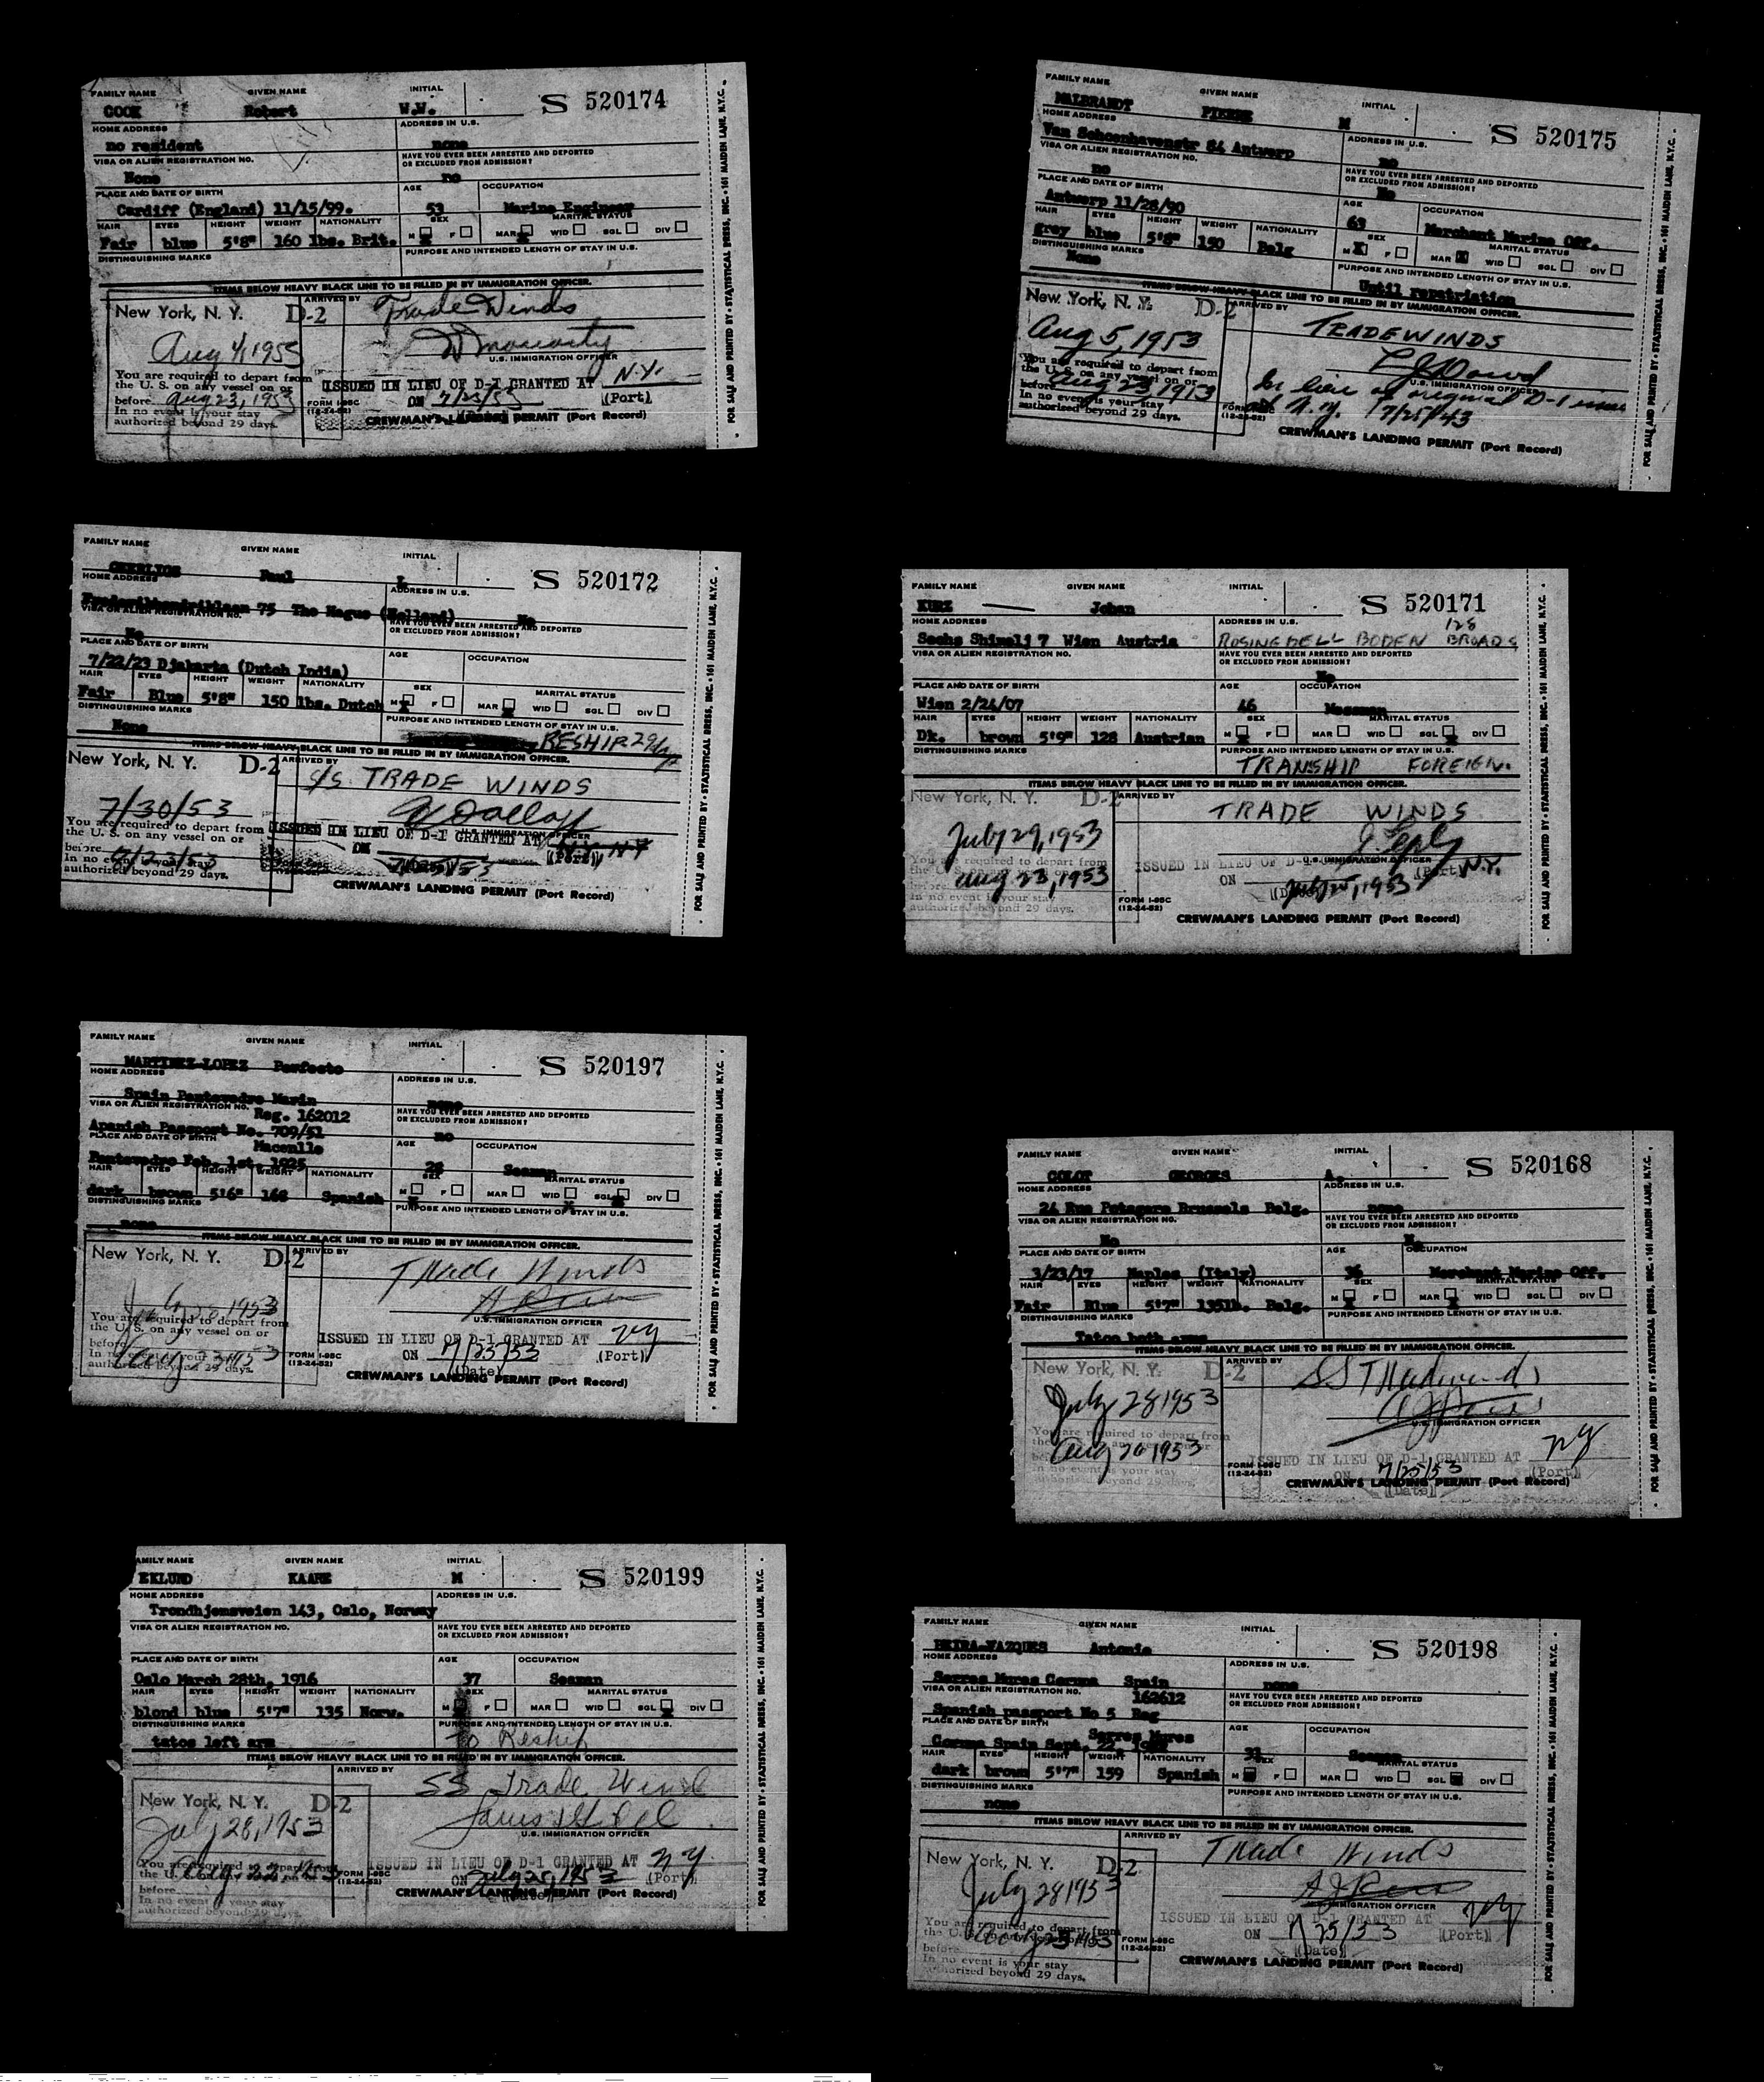 FAMILY NAME GIVEN NAME INITIAL
COOK Robert W.W. S 520174
HOME ADDRESS ADDRESS IN U.S.
no resident none
VISA OR ALIEN REGISTRATION NO. HAVE YOU EVER BEEN ARRESTED AND DEPORTED OR EXCLUDED FROM ADMISSION?
None no
PLACE AND DATE OF BIRTH AGE OCCUPATION
Cardiff (England) 11/15/99. 53 Marine Engineer
HAIR EYES HEIGHT WEIGHT NATIONALITY SEX MARITAL STATUS
Fair blue 5'8" 160 lbs. Brit. M F MAR WID SGL DIV
DISTINGUISHING MARKS PURPOSE AND INTENDED LENGTH OF STAY IN U.S.
ITEMS BELOW HEAVY BLACK LINE TO BE FILLED IN BY IMMIGRATION OFFICER.
New York, N. Y. D-2 ARRIVED BY Trade Winds
Aug 4, 1953
U.S. IMMIGRATION OFFICER
You are required to depart from
the U. S. on any vessel on or
before Aug 23, 1953
In no event is your stay
authorized beyond 29 days.
ISSUED IN LIEU OF D-1 GRANTED AT N.Y.
ON 7/25/53 (Port)
FORM I-95C
(12-24-52)
CREWMAN'S LANDING PERMIT (Port Record)
FOR SALE AND PRINTED BY • STATISTICAL PRESS, INC. • 161 MAIDEN LANE, N.Y.C.
FAMILY NAME GIVEN NAME INITIAL
MALBRANDT PIERRE M S 520175
HOME ADDRESS ADDRESS IN U.S.
Van Schoonhavenstr 84 Antwerp no
VISA OR ALIEN REGISTRATION NO. HAVE YOU EVER BEEN ARRESTED AND DEPORTED OR EXCLUDED FROM ADMISSION?
no No
PLACE AND DATE OF BIRTH AGE OCCUPATION
Antwerp 11/28/90 63 Merchant Marine Off.
HAIR EYES HEIGHT WEIGHT NATIONALITY SEX MARITAL STATUS
grey blue 5'8" 150 Belg M F MAR WID SGL DIV
DISTINGUISHING MARKS PURPOSE AND INTENDED LENGTH OF STAY IN U.S.
None Until repatriation
ITEMS BELOW HEAVY BLACK LINE TO BE FILLED IN BY IMMIGRATION OFFICER.
New York, N. Y. D-2 ARRIVED BY TRADEWINDS
Aug 5, 1953
U.S. IMMIGRATION OFFICER
You are required to depart from
the U. S. on any vessel on or
before Aug 23 1953
In no event is your stay
authorized beyond 29 days.
In lieu of original D-1 issued
at N.Y. 7/25/43
FORM I-95C
(12-24-52)
CREWMAN'S LANDING PERMIT (Port Record)
FOR SALE AND PRINTED BY • STATISTICAL PRESS, INC. • 161 MAIDEN LANE, N.Y.C.
FAMILY NAME GIVEN NAME INITIAL
Paul L. S 520172
HOME ADDRESS ADDRESS IN U.S.
75 The Hague (Holland) No
VISA OR ALIEN REGISTRATION NO. HAVE YOU EVER BEEN ARRESTED AND DEPORTED OR EXCLUDED FROM ADMISSION?
No
PLACE AND DATE OF BIRTH AGE OCCUPATION
7/22/23 Djakarta (Dutch India)
HAIR EYES HEIGHT WEIGHT NATIONALITY SEX MARITAL STATUS
Fair Blue 5'8" 150 lbs. Dutch M F MAR WID SGL DIV
DISTINGUISHING MARKS PURPOSE AND INTENDED LENGTH OF STAY IN U.S.
None RESHIP 29
ITEMS BELOW HEAVY BLACK LINE TO BE FILLED IN BY IMMIGRATION OFFICER.
New York, N. Y. D-2 ARRIVED BY S/S TRADE WINDS
7/30/53
U.S. IMMIGRATION OFFICER
You are required to depart from
the U. S. on any vessel on or
before 8/23/53
In no event is your stay
authorized beyond 29 days.
ISSUED IN LIEU OF D-1 GRANTED AT N.Y. NY
ON 7/25/53 (Port)
CREWMAN'S LANDING PERMIT (Port Record)
FOR SALE AND PRINTED BY • STATISTICAL PRESS, INC. • 161 MAIDEN LANE, N.Y.C.
FAMILY NAME GIVEN NAME INITIAL
KURZ Johan S 520171
HOME ADDRESS ADDRESS IN U.S. 128
Sechs Shimelj 7 Wien Austria ROSINGDELL BODEN BROAD S
VISA OR ALIEN REGISTRATION NO. HAVE YOU EVER BEEN ARRESTED AND DEPORTED OR EXCLUDED FROM ADMISSION?
No
PLACE AND DATE OF BIRTH AGE OCCUPATION
Wien 2/24/07 46 Messman
HAIR EYES HEIGHT WEIGHT NATIONALITY SEX MARITAL STATUS
Dk. brown 5'9" 128 Austrian M F MAR WID SGL DIV
DISTINGUISHING MARKS PURPOSE AND INTENDED LENGTH OF STAY IN U.S.
TRANSHIP FOREIGN.
ITEMS BELOW HEAVY BLACK LINE TO BE FILLED IN BY IMMIGRATION OFFICER.
New York, N. Y. D-2 ARRIVED BY TRADE WINDS
July 29, 1953
U.S. IMMIGRATION OFFICER
You are required to depart from
Aug 23, 1953
before
In no event is your stay
authorized beyond 29 days.
ISSUED IN LIEU OF D-1 N.Y.
ON July 25, 1953 (Port)
(Date)
FORM I-95C
(12-24-52)
CREWMAN'S LANDING PERMIT (Port Record)
FOR SALE AND PRINTED BY • STATISTICAL PRESS, INC. • 161 MAIDEN LANE, N.Y.C.
FAMILY NAME GIVEN NAME INITIAL
MARTINEZ-LOPEZ Perfecto S 520197
HOME ADDRESS ADDRESS IN U.S.
Spain Pontevedro Marin none
VISA OR ALIEN REGISTRATION NO. HAVE YOU EVER BEEN ARRESTED AND DEPORTED OR EXCLUDED FROM ADMISSION?
Reg. 162012
Apanish Passport No. 709/51 no
PLACE AND DATE OF BIRTH AGE OCCUPATION
Maconlle
Pontevedro Feb. 1st. 1925 28 Seaman
HAIR EYES HEIGHT WEIGHT NATIONALITY SEX MARITAL STATUS
dark brown 5'6" 168 Spanish M F MAR WID SGL DIV
DISTINGUISHING MARKS PURPOSE AND INTENDED LENGTH OF STAY IN U.S.
none
ITEMS BELOW HEAVY BLACK LINE TO BE FILLED IN BY IMMIGRATION OFFICER.
New York, N. Y. D-2 ARRIVED BY Trade Winds
July 28, 1953
U.S. IMMIGRATION OFFICER
You are required to depart from
the U. S. on any vessel on or
before Aug 23 1953
In no event is your stay
authorized beyond 29 days.
ISSUED IN LIEU OF D-1 GRANTED AT NY
ON 7/25/53 (Port)
(Date)
FORM I-95C
(12-24-52)
CREWMAN'S LANDING PERMIT (Port Record)
FOR SALE AND PRINTED BY • STATISTICAL PRESS, INC. • 161 MAIDEN LANE, N.Y.C.
FAMILY NAME GIVEN NAME INITIAL
COLOT GEORGES A. S 520168
HOME ADDRESS ADDRESS IN U.S.
24 Rue Potagere Brussels Belg. none
VISA OR ALIEN REGISTRATION NO. HAVE YOU EVER BEEN ARRESTED AND DEPORTED OR EXCLUDED FROM ADMISSION?
No No
PLACE AND DATE OF BIRTH AGE OCCUPATION
3/23/17 Naples (Italy) 36 Merchant Marine Off.
HAIR EYES HEIGHT WEIGHT NATIONALITY SEX MARITAL STATUS
Fair Blue 5'7" 135lb. Belg. M F MAR WID SGL DIV
DISTINGUISHING MARKS PURPOSE AND INTENDED LENGTH OF STAY IN U.S.
Tatoo both arms
ITEMS BELOW HEAVY BLACK LINE TO BE FILLED IN BY IMMIGRATION OFFICER.
New York, N. Y. D-2 ARRIVED BY SS Tradewinds
July 28 1953
U.S. IMMIGRATION OFFICER
You are required to depart from
Aug 20 1953
In no event is your stay
authorized beyond 29 days.
ISSUED IN LIEU OF D-1 GRANTED AT NY
ON 7/25/53 (Port)
(Date)
FORM I-95C
(12-24-52)
CREWMAN'S LANDING PERMIT (Port Record)
FOR SALE AND PRINTED BY • STATISTICAL PRESS, INC. • 161 MAIDEN LANE, N.Y.C.
FAMILY NAME GIVEN NAME INITIAL
EKLUND KAARE M S 520199
HOME ADDRESS ADDRESS IN U.S.
Trondhjemsveien 143, Oslo, Norway
VISA OR ALIEN REGISTRATION NO. HAVE YOU EVER BEEN ARRESTED AND DEPORTED OR EXCLUDED FROM ADMISSION?
PLACE AND DATE OF BIRTH AGE OCCUPATION
Oslo March 28th, 1916 37 Seaman
HAIR EYES HEIGHT WEIGHT NATIONALITY SEX MARITAL STATUS
blond blue 5'7" 135 Norw. M F MAR WID SGL DIV
DISTINGUISHING MARKS PURPOSE AND INTENDED LENGTH OF STAY IN U.S.
tatos left arm To Reship
ITEMS BELOW HEAVY BLACK LINE TO BE FILLED IN BY IMMIGRATION OFFICER.
New York, N. Y. D-2 ARRIVED BY SS Trade Wind
July 28, 1953
U.S. IMMIGRATION OFFICER
You are required to depart from
the U. Aug 22, 1953
before
In no event is your stay
authorized beyond 29 days.
ISSUED IN LIEU OF D-1 GRANTED AT NY
ON July 25, 1953 (Port)
(Date)
FORM I-95C
(12-24-52)
CREWMAN'S LANDING PERMIT (Port Record)
FOR SALE AND PRINTED BY • STATISTICAL PRESS, INC. • 161 MAIDEN LANE, N.Y.C.
FAMILY NAME GIVEN NAME INITIAL
Antonio S 520198
HOME ADDRESS ADDRESS IN U.S.
Serres Mures Coruna Spain none
VISA OR ALIEN REGISTRATION NO. HAVE YOU EVER BEEN ARRESTED AND DEPORTED OR EXCLUDED FROM ADMISSION?
162612
Spanish passport No 5 Reg
PLACE AND DATE OF BIRTH AGE OCCUPATION
Serres Mures
Coruna Spain Sept. 22, Seaman
HAIR EYES HEIGHT WEIGHT NATIONALITY SEX MARITAL STATUS
dark brown 5'7" 159 Spanish M F MAR WID SGL DIV
DISTINGUISHING MARKS PURPOSE AND INTENDED LENGTH OF STAY IN U.S.
none
ITEMS BELOW HEAVY BLACK LINE TO BE FILLED IN BY IMMIGRATION OFFICER.
New York, N. Y. D-2 ARRIVED BY Trade Winds
July 28 1953
IMMIGRATION OFFICER
You are required to depart from
the U. S. on any vessel on or
before Aug 23 1953
In no event is your stay
authorized beyond 29 days.
ISSUED IN LIEU OF D-1 GRANTED AT NY
ON 7/25/53 (Port)
(Date)
FORM I-95C
(12-24-52)
CREWMAN'S LANDING PERMIT (Port Record)
FOR SALE AND PRINTED BY • STATISTICAL PRESS, INC. • 161 MAIDEN LANE, N.Y.C.